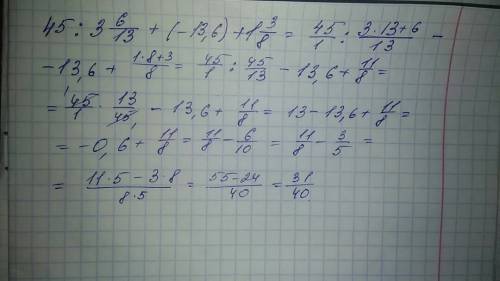 45 : 3 6/13 + (-13,6) + 1 3/8 = 45/1 : 3·13+6/13 -
-13,6 + 1·8+3/8 = 45/1 : 45/13 - 13,6 + 11/8 =
= 45/1 · 13/45 - 13,6 + 11/8 = 13 - 13,6 + 11/8 =
= -0,6 + 11/8 = 11/8 - 6/10 = 11/8 - 3/5 =
= 11·5 - 3·8/8·5 = 55-24/40 = 31/40